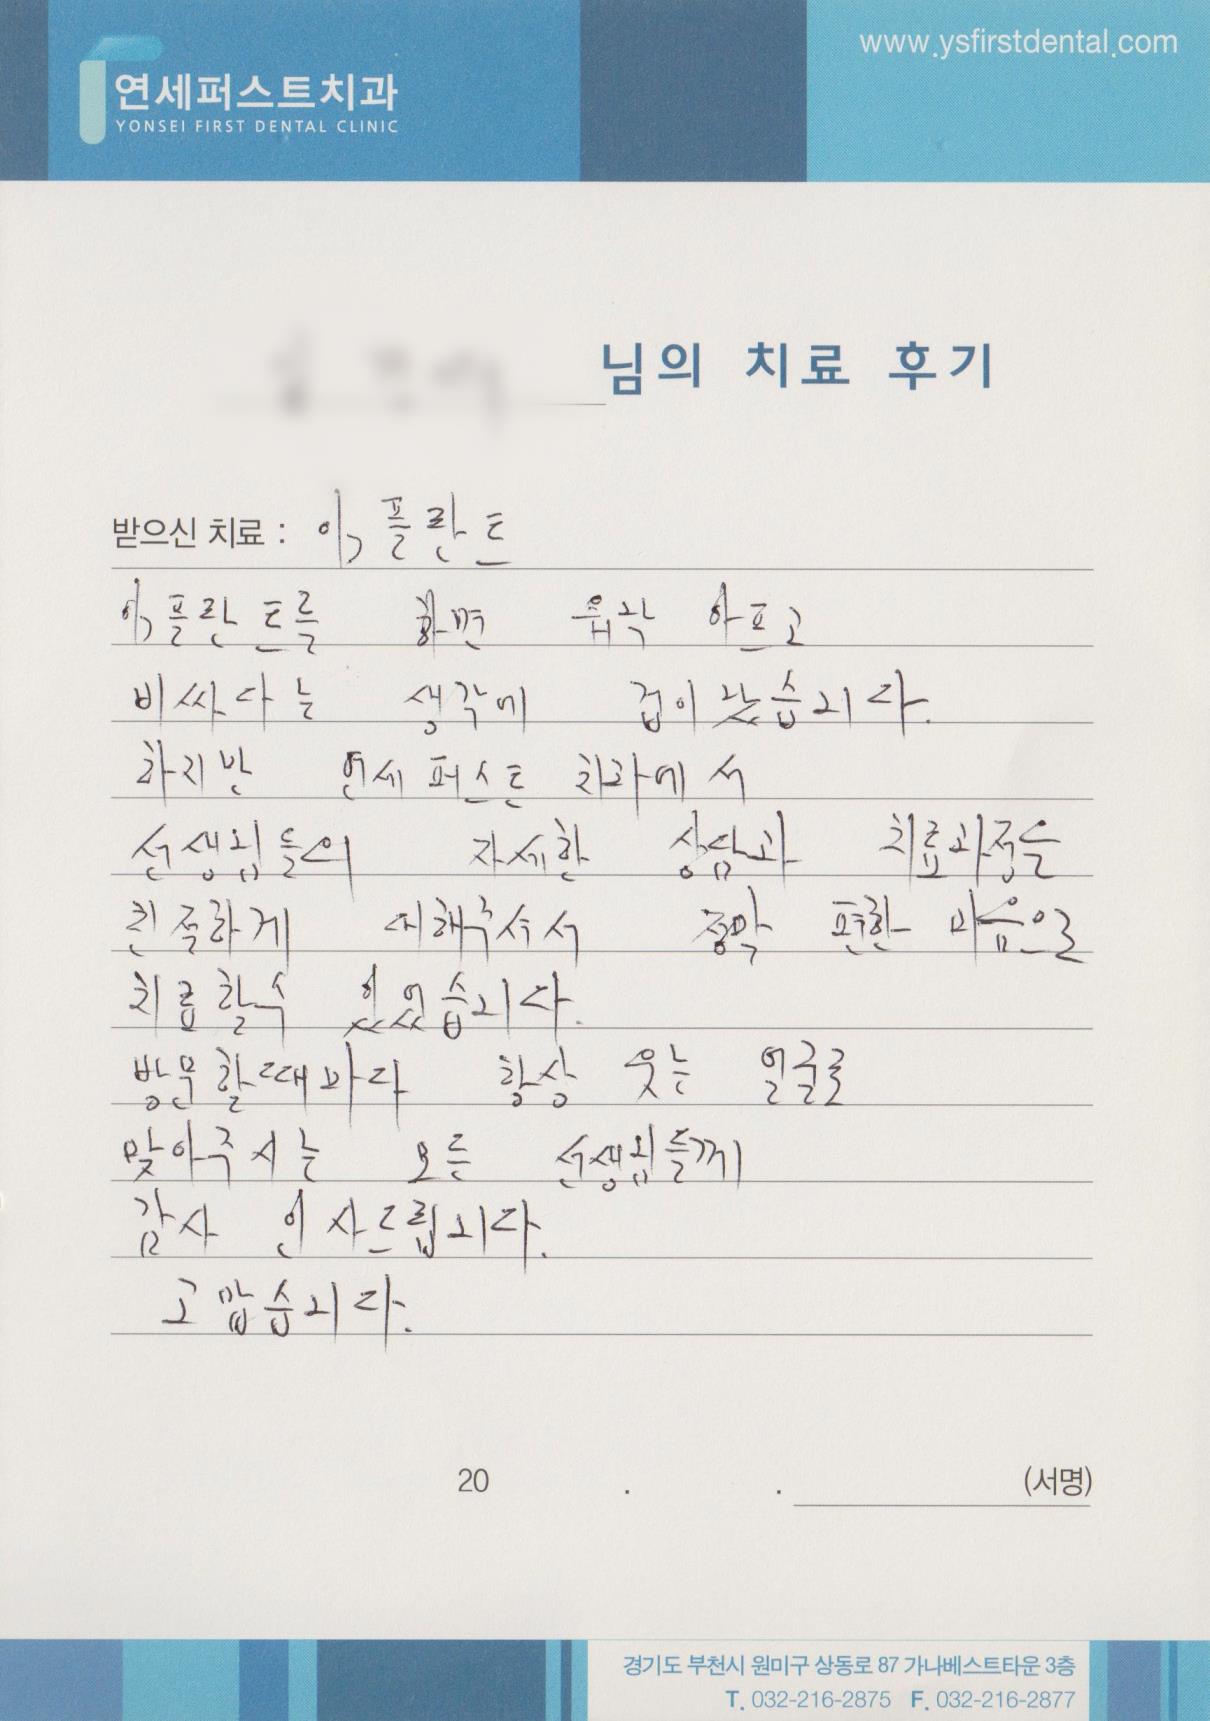 www.ysfirstdental.com
연세퍼스트치과
YONSEI FIRST DENTAL CLINIC
님의 치료 후기
받으신 치료 : 임플란트
임플란트를 하면 무작 아프고
비싸다는 생각에 겁이 났습니다.
하지만 연세퍼스트 치과에서
선생님들의 자세한 상담과 치료과정을
친절하게 대해주셔서 정말 편한 마음으로
치료할수 있었습니다.
방문할때마다 항상 웃는 얼굴로
맞아주시는 모든 선생님들께
감사 인사드립니다.
고맙습니다.
20 . . (서명)
경기도 부천시 원미구 상동로 87 가나베스트타운 3층
T. 032-216-2875 F. 032-216-2877